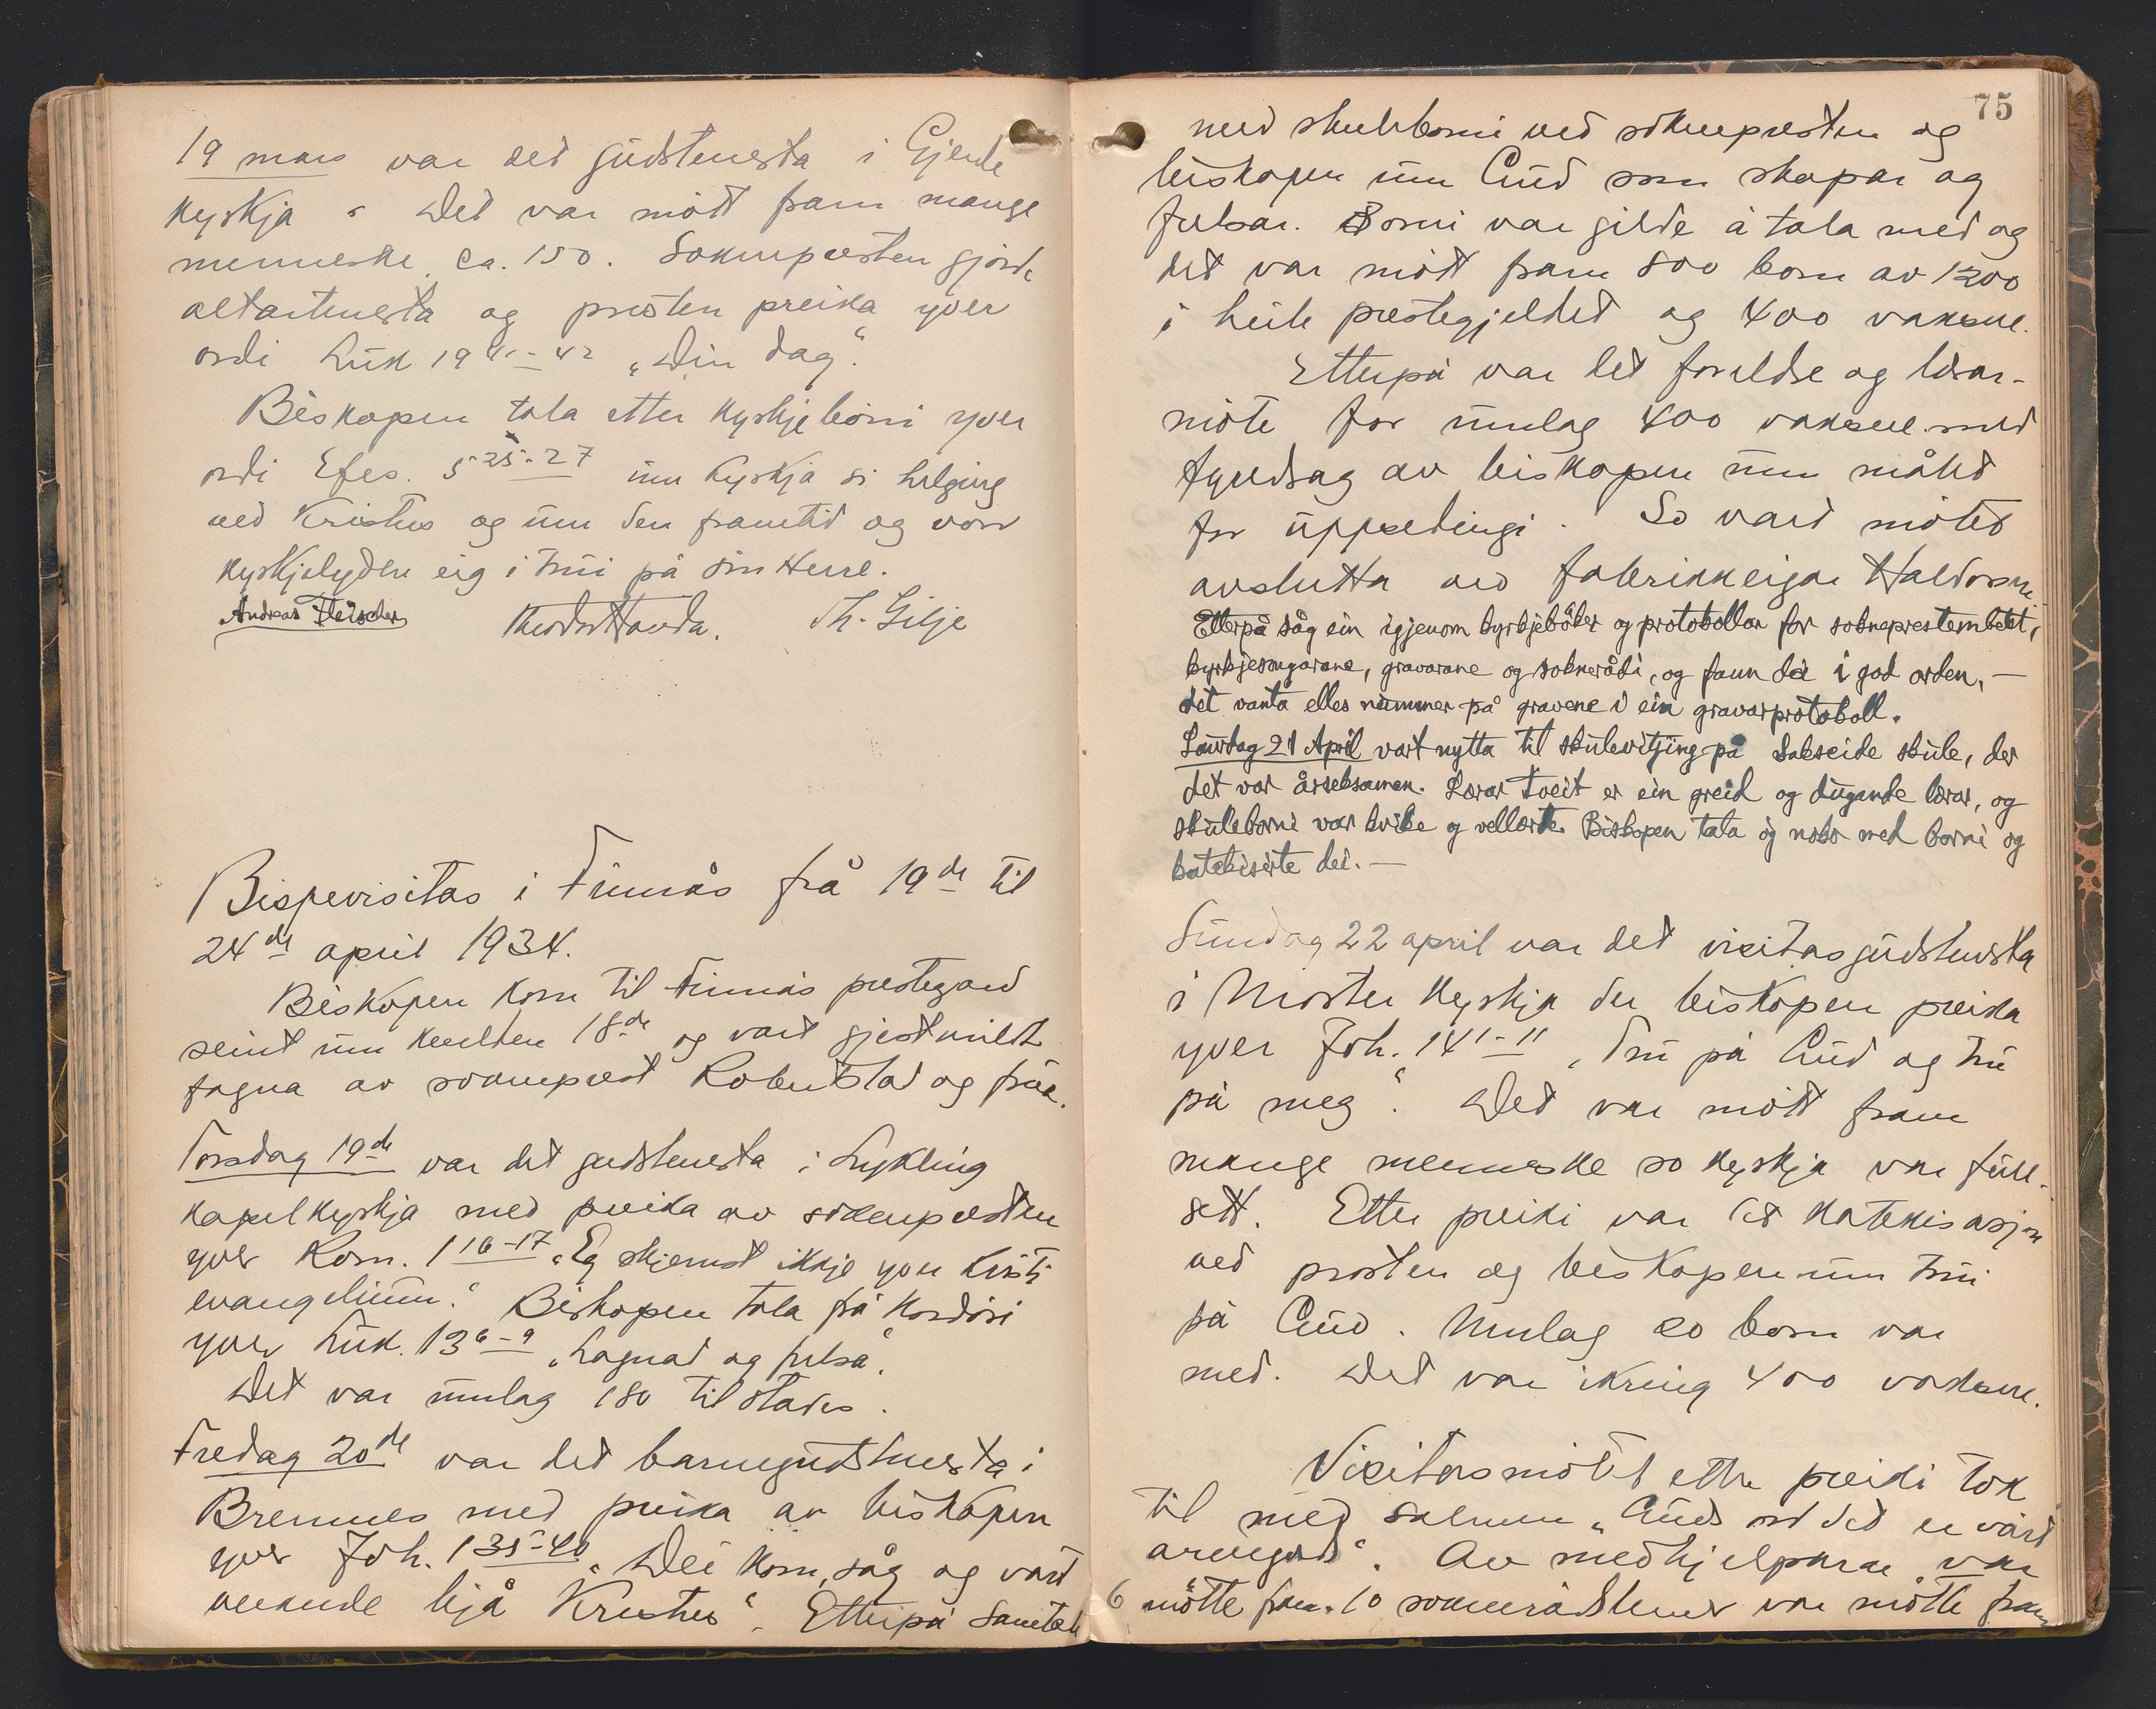 19 mars var det gudstenesta i Gjerde
kyrkja. Det var møtt fram mange
menneske ca. 150. Soknepresten gjorde
altartenesta og prosten preika yver
ordi Luk 19 41-42 „Din dag“.
Biskopen tala etter kyrkjebøni yver
ordi Efes. 5 25-27 um kyrkja si helging
ved Kristus og um den framtid og von
kyrkjelyden eig i trui på sin Herre.
Andreas Fleischer Theodor Handa. Th. Gilje
Bispevisitas i Finnås frå 19de til
24de april 1934.
Biskopen kom til Finnås prestegard
seint um kvelden 18de og vart gjestmildt
fagna av sokneprest Robertstad og frua.
Torsdag 19de var det gudstenesta i Lykling
kapelkyrkja med preika av soknepresten
yver Rom. 1 16-17 „Eg skjemst ikkje yver Kristi
evangelium“. Biskopen tala frå kordøri
yver Luk. 13 6-9 „Lagnad og frelsa“.
Det var umlag 180 til stades.
Fredag 20de var det barnegudstenesta i
Bremnes med preika av biskopen
yver Joh. 1 35-40 „Dei kom, såg og vart
verande hjå Kristus“. Etterpå samtale
75
med skuleborni ved soknepresten og
biskopen um Gud som skapar og
frelsar. Borni var gilde å tala med og
det var møtt fram 800 born av 1200
i heile prestegjeldet og 400 vaksne.
Etterpå var det foreldre og lærar-
møte for umlag 400 vaksne med
fyredrag av biskopen um målet
for uppsedingi. So vart møtet
avslutta ved fabrikkeigar Haldorsen.
Etterpå såg ein igjenom kyrkjebøker og protokollar for sokneprestembetet,
kyrkjesongarane, gravarane og soknerådi, og fann dei i god orden, —
det vanta elles nummer på gravene i ein gravarprotokoll.
Laurdag 21 April vart nytta til skulevitjing på Lakseide skule, der
det var årseksamen. Lærar Tveit er ein greid og dugande lærar, og
skuleborni var kvike og vellærde. Biskopen tala og noko med borni og
katekiserte dei. —
Sundag 22 april var det visitasgudstenesta
i Moster kyrkja der biskopen preika
yver Joh. 14 1-11 „Tru på Gud og tru
på meg“. Det var møtt fram
mange menneske so kyrkja var full-
sett. Etter preiki var det katekisasjon
ved prosten og biskopen um trui
på Gud. Umlag 20 born var
med. Det var ikring 400 vaksne.
Visitasmøtet etter preiki tok
til med salmen „Guds ord det er vårt
arvegods“. Av medhjelparar var
6 møtte fram. 10 soknerådslemer var møtte fram